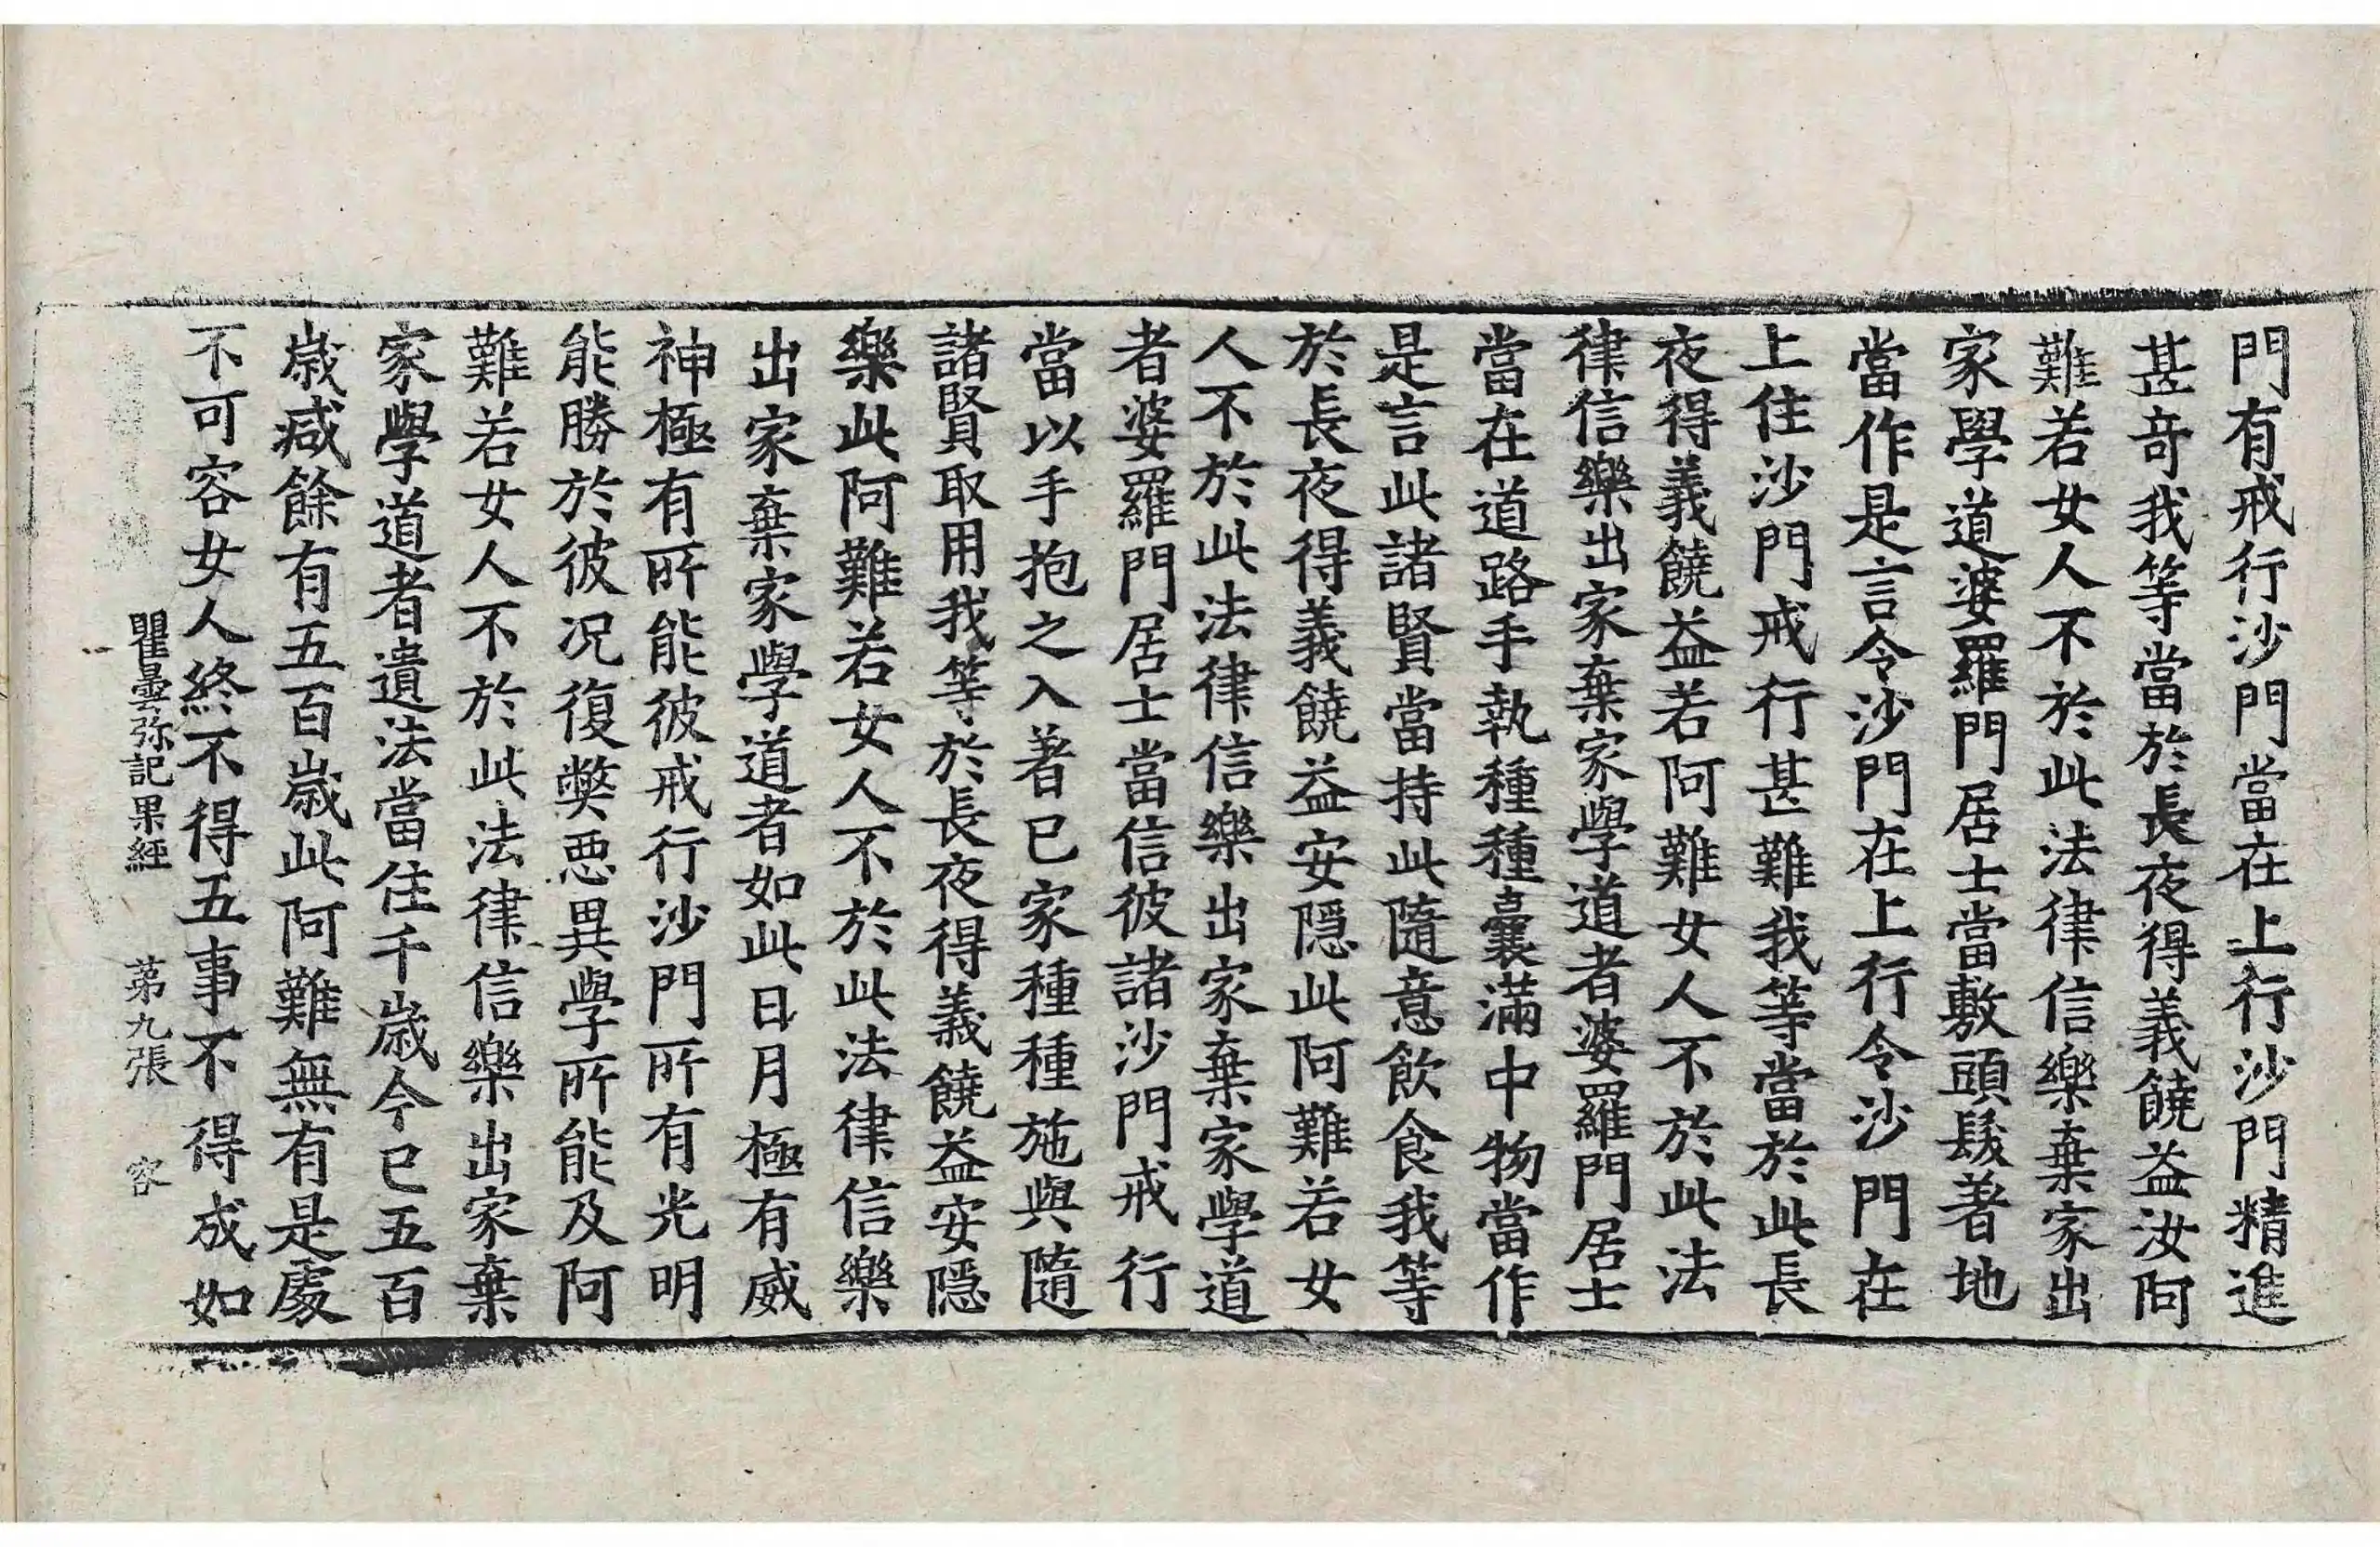 門有戒行沙門當在上行沙門精進
甚奇我等當於長夜得義饒益汝阿
難若女人不於此法律信樂棄家出
家學道婆羅門居士當敷頭髮著地
當作是言令沙門在上行令沙門在
上住沙門戒行甚難我等當於此長
夜得義饒益若阿難女人不於此法
律信樂出家棄家學道者婆羅門居士
當在道路手執種種囊滿中物當作
是言此諸賢當持此隨意飲食我等
於長夜得義饒益安隱此阿難若女
人不於此法律信樂出家棄家學道
者婆羅門居士當信彼諸沙門戒行
當以手抱之入著已家種種施與隨
諸賢取用我等於長夜得義饒益安隱
樂此阿難若女人不於此法律信樂
出家棄家學道者如此日月極有威
神極有所能彼戒行沙門所有光明
能勝於彼況復獘惡異學所能及阿
難若女人不於此法律信樂出家棄
家學道者遺法當住千歲今已五百
歲減餘有五百歲此阿難無有是處
不可容女人終不得五事不得成如
瞿曇弥記果經 第九張 容